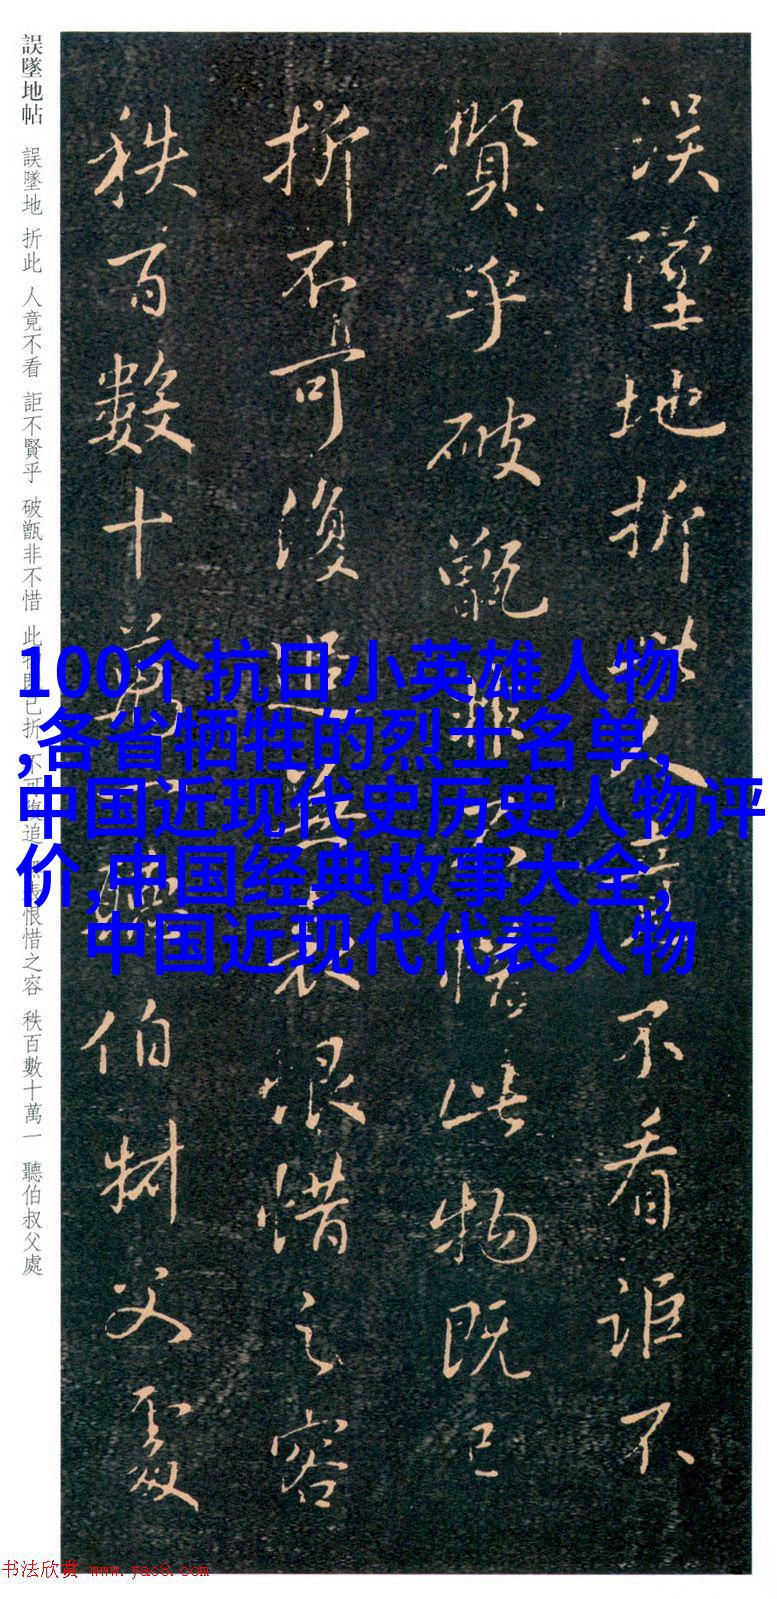 誤墜地折此人竟不看詎不
賢乎破甑非不惜此物既已
折不可復追無表恨惜之容
秩百數十萬一聽伯叔父處
誤墜地帖 誤墜地 折此 人竟不看 詎不賢乎 破甑非不惜 此物既已折 不可復追 無表恨惜之容 秩百數十萬一 聽伯叔父處
100个抗日小英雄人物
,各省牺牲的烈士名单,
中国近现代史历史人物评
价,中国经典故事大全,
中国近现代代表人物
书法欣赏 www.yac8.com